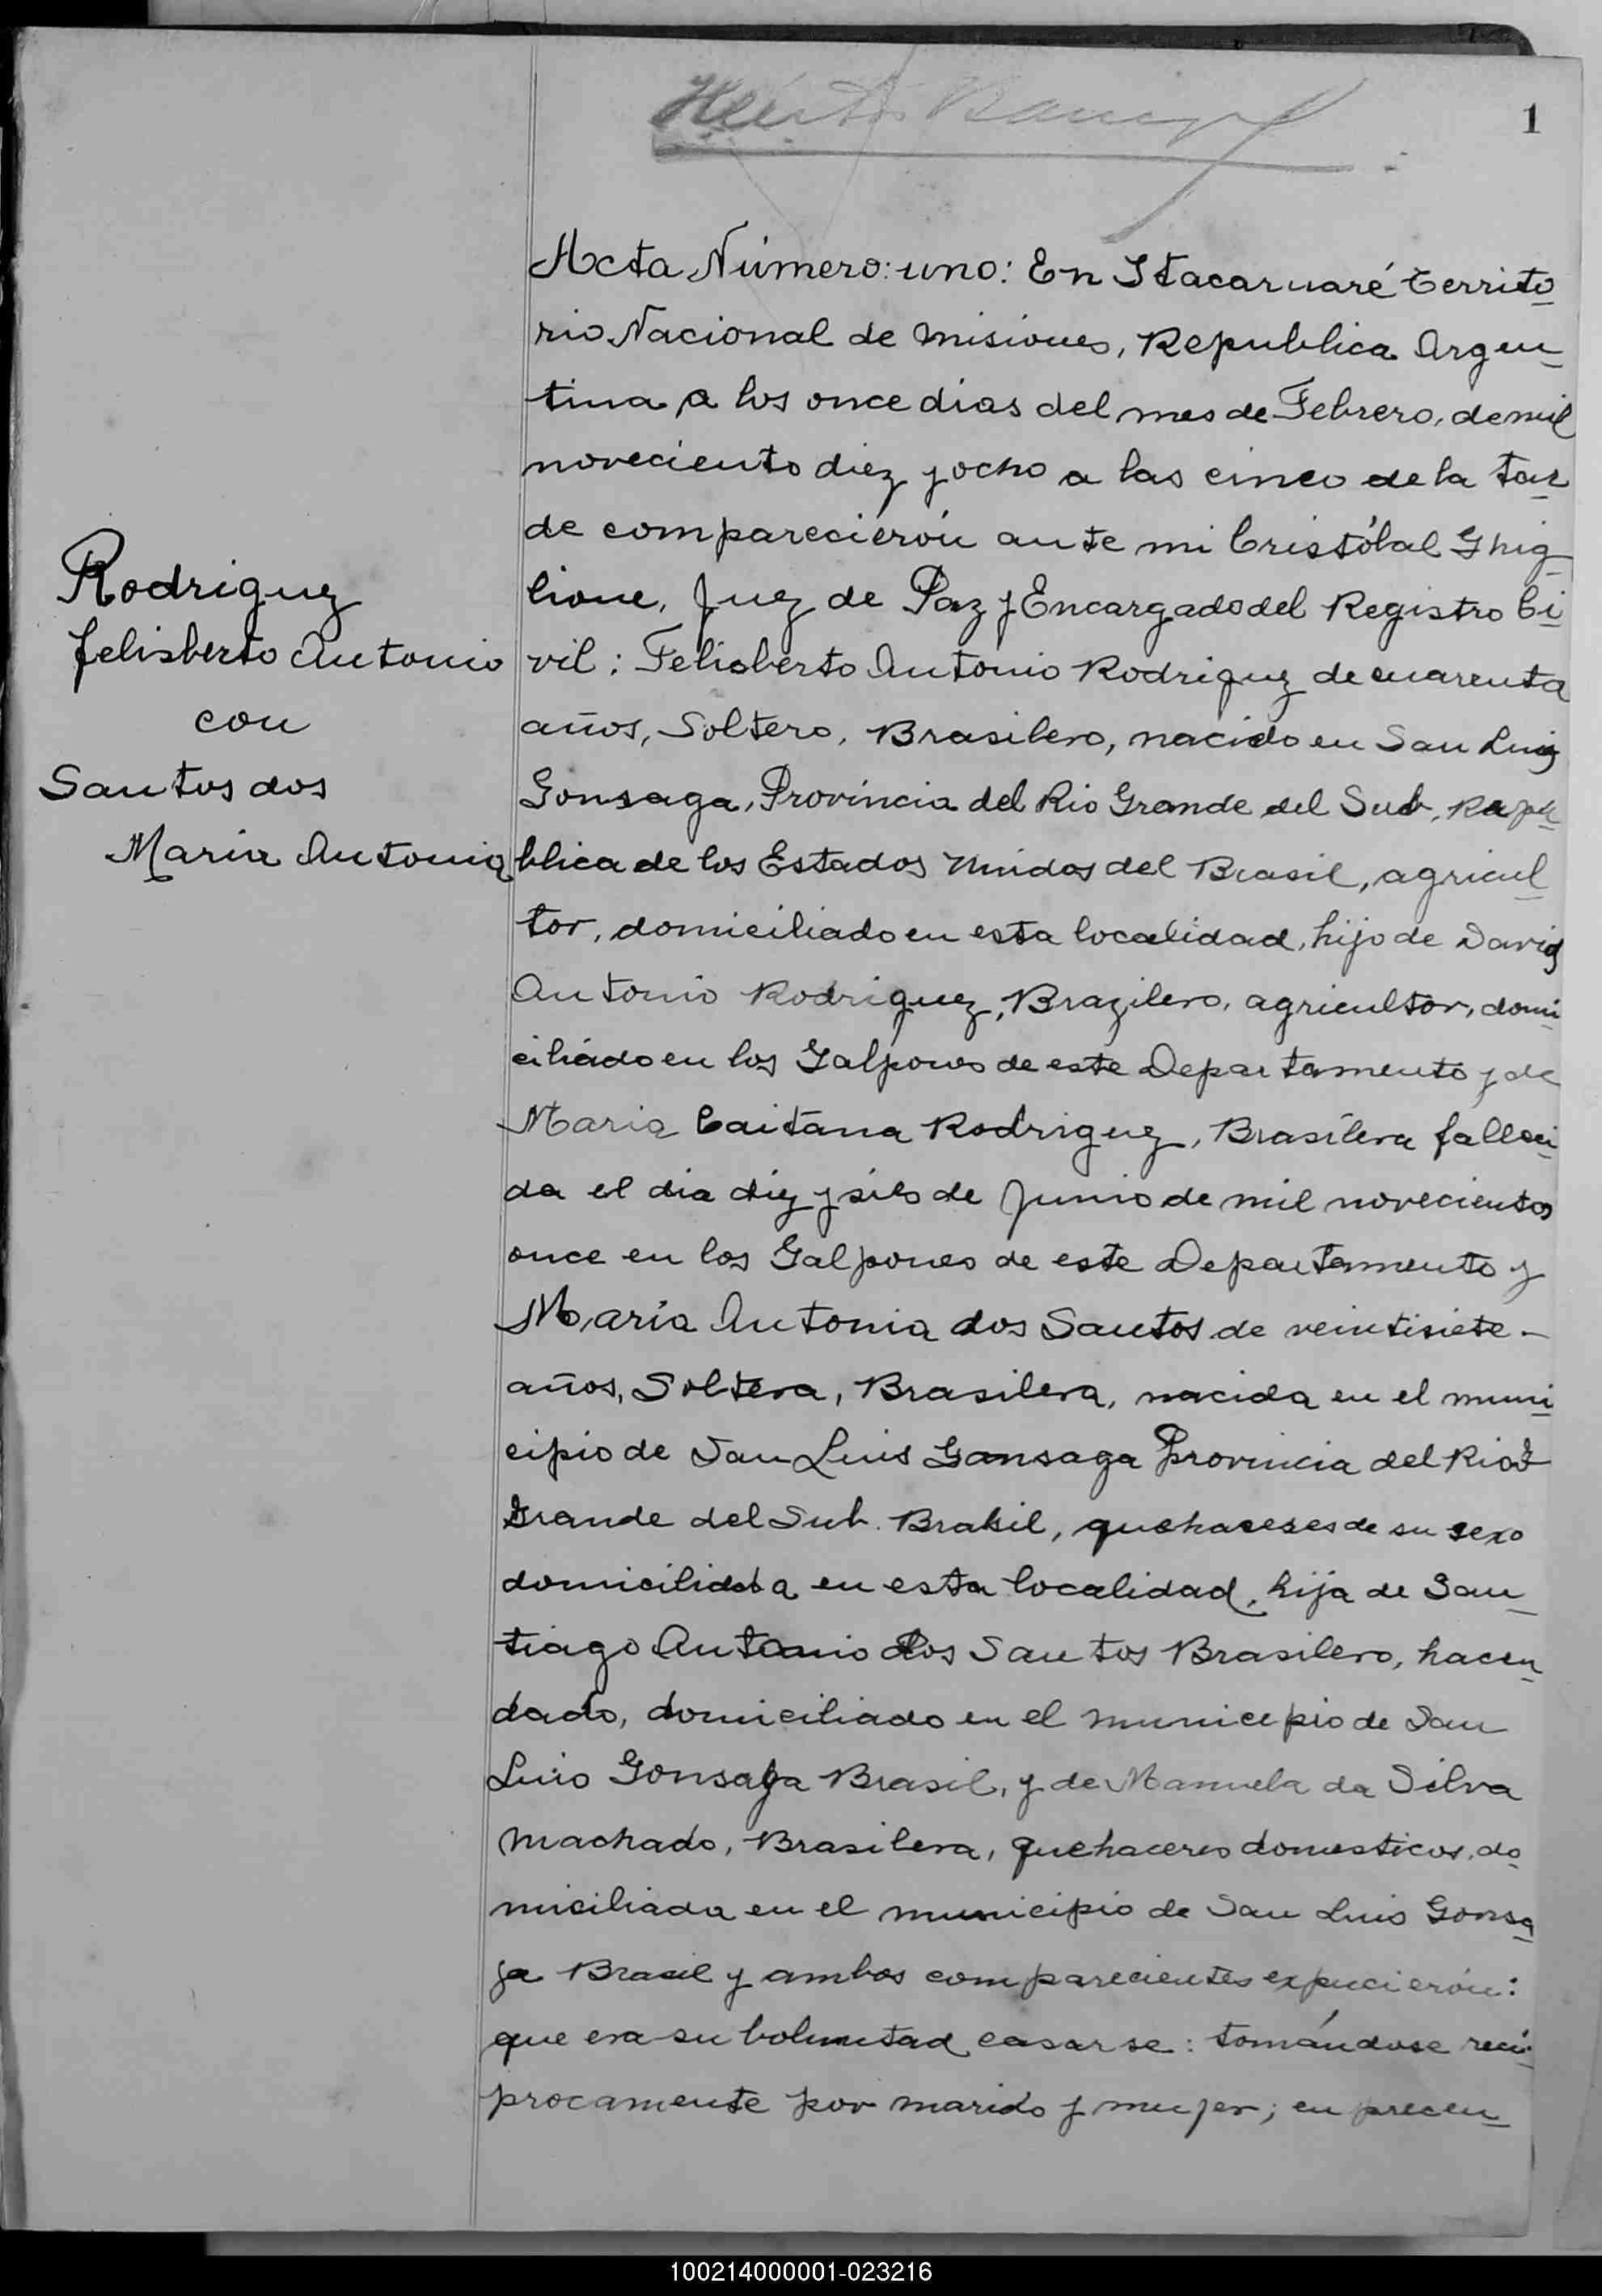 1
Acta Número: uno: En Itacaruaré territo
rio Nacional de Misiones, Republica Argen
tina a los once dias del mes de Febrero, de mil
noveciento diez y ocho a las cinco de la tar
de comparecierón ante mi Cristóbal Ghig
lione, Juez de Paz y Encargado del Registro Ci
Rodriguez
felisberto Antonio
con
Santos dos
Maria Antonia
vil: Felisberto Antonio Rodriguez de cuarenta
años, Soltero, Brasilero, nacido en San Luis
Gonsaga, Provincia del Rio Grande del Sud, Repu
blica de los Estados Unidos del Brasil, agricul
tor, domiciliado en esta localidad, hijo de David
Antonio Rodriguez, Brazilero, agricultor, domi
ciliado en los Galpones de este Departamento y de
Maria Caitana Rodriguez, Brasilera falleci
da el dia diez y de Junio de mil novecientos
once en los Galpones de este Departamento y
María Antonia dos Santos de veintisiete -
años, Soltera, Brasilera, nacida en el muni
cipio de San Luis Gansaga Provincia del Rio
Grande del Sub. Brasil, quehaseses de su sexo
domiciliada en esta localidad, hija de San
tiago Antonio dos Santos Brasilero, hacen
dado, domiciliado en el municepio de San
Luis Gonsaga Brasil, y de Manuela da Silva
Machado, Brasilera, quehaceres domesticos, do
miciliada en el municipio de San Luis Gonsa
ga Brasil y ambos comparecientes expucierón:
que era su boluntad casarse: tomándose reci
procamente por marido y mujer; en precen
100214000001-023216